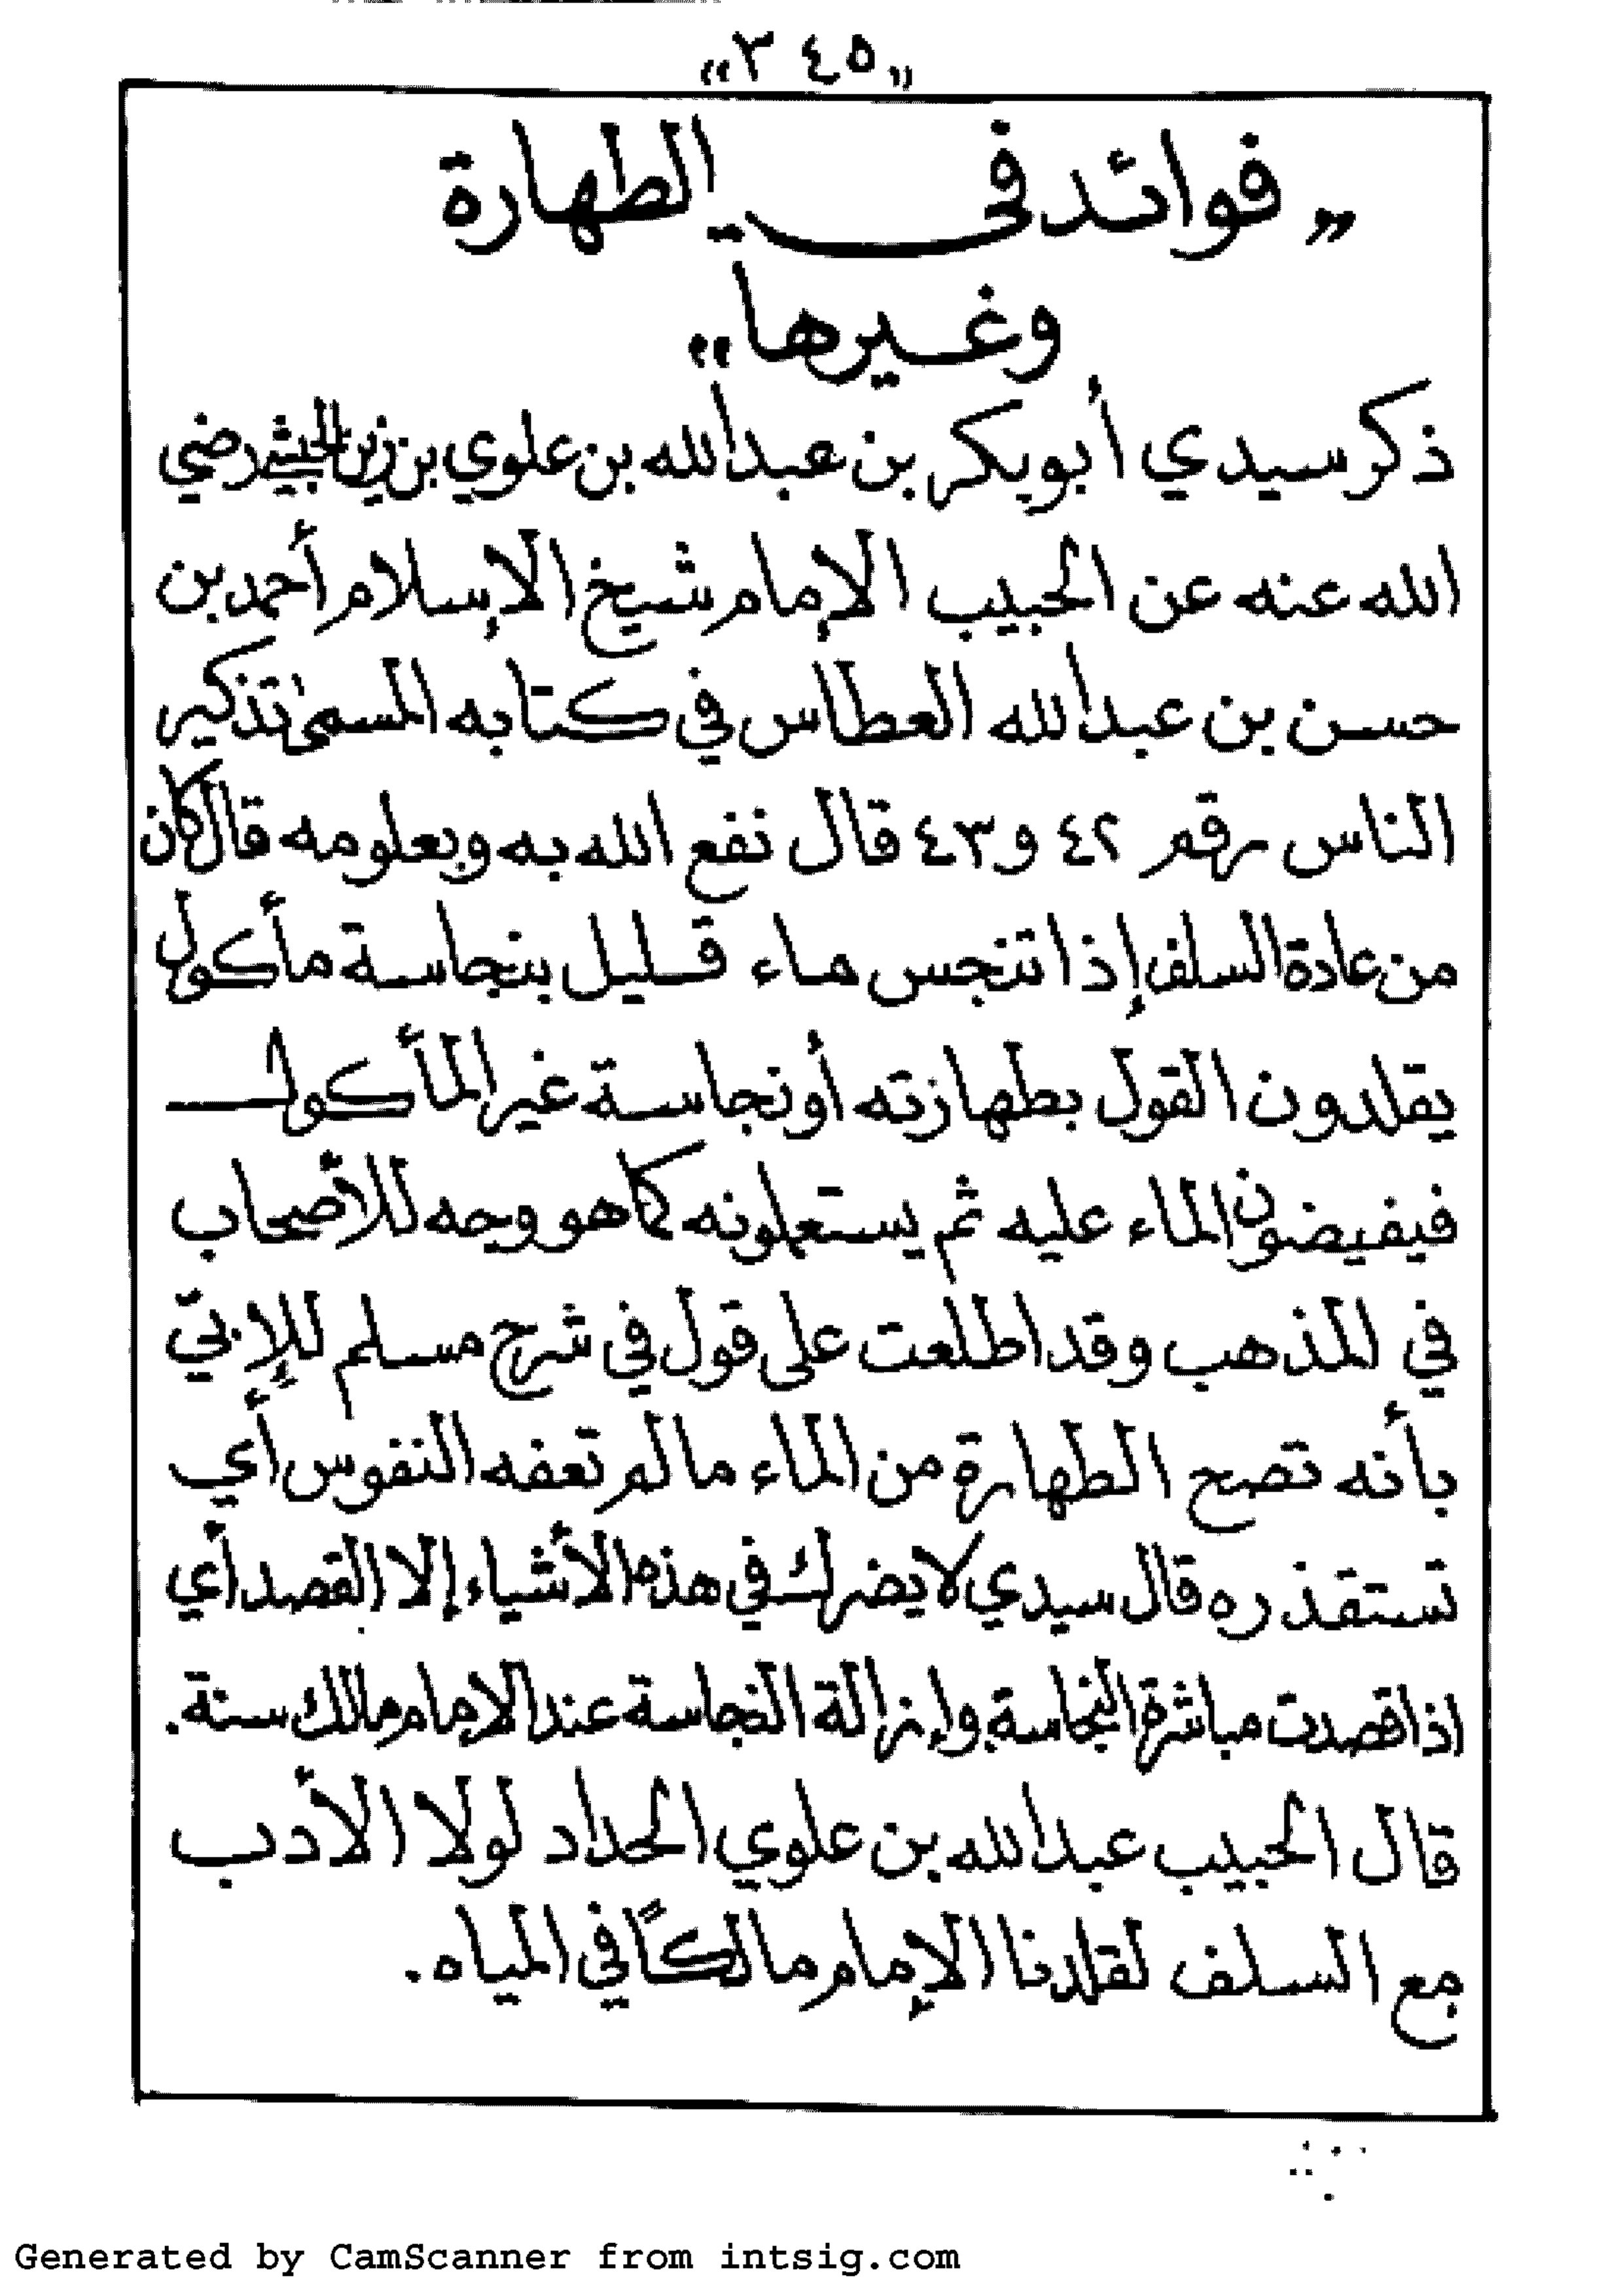 «٣٤٥»
„فوائد في الطهارة
وغيرها"
ذكر سيدي أبو بكر بن عبدالله بن علوي بن زين الحبشي رضي
الله عنه عن الحبيب الإمام شيخ الإسلام أحمد بن
حسن بن عبدالله العطاس في كتابه المسمى تذكير
الناس رقم ٤٢ و٤٣ قال نفع الله به وبعلومه قال كان
من عادة السلف إذا تنجس ماء قليل بنجاسة مأكول
يقلدون القول بطهارته أو نجاسة غير المأكول
فيفيضون الماء عليه ثم يستعملونه كما هو وجه للأصحاب
في المذهب وقد اطلعت على قول في شرح مسلم للإبيّ
بأنه تصح الطهارة من الماء ما لم تعفه النفوس أي
تستقذره قال سيدي لا يضرك في هذه الأشياء إلا القصد أي
اذا قصدت مباشرة النجاسة وإزالة النجاسة عند الإمام مالك سنة.
قال الحبيب عبدالله بن علوي الحداد لولا الأدب
مع السلف لقلدنا الإمام مالكًا في المياه.
Generated by CamScanner from intsig.com